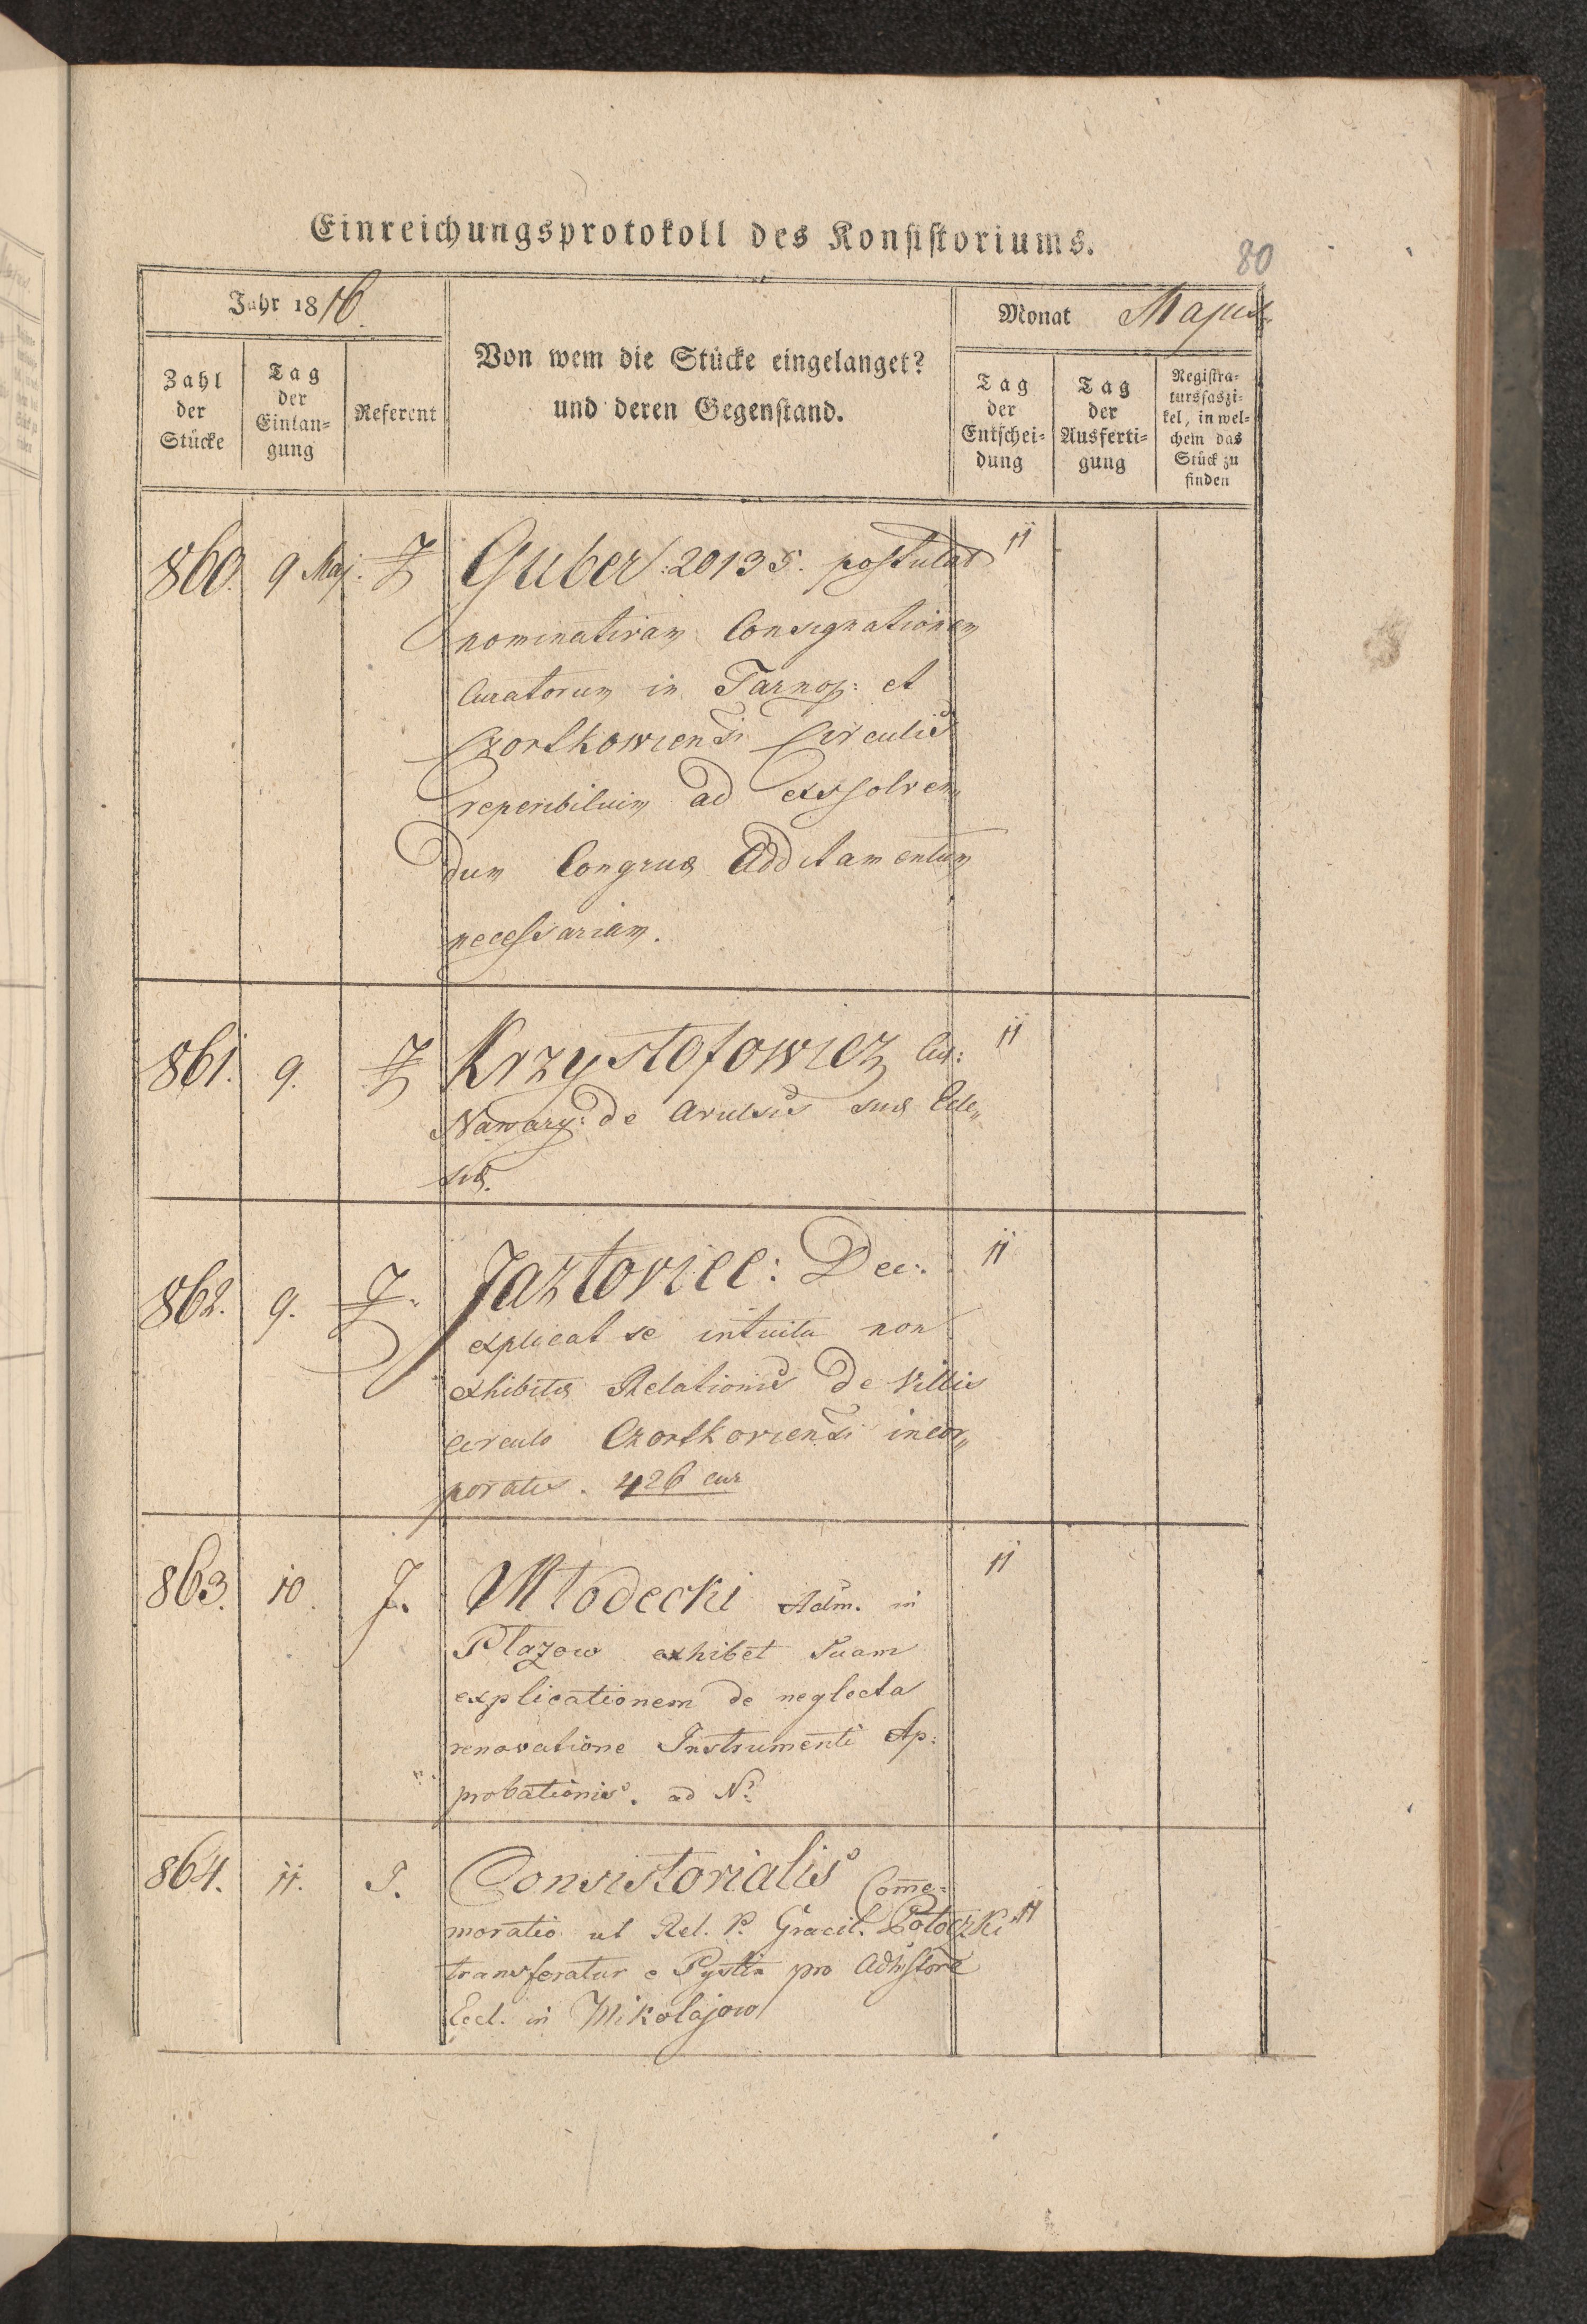 Einreichungsprotokoll des Konsistoriums.
80
Jahr 1816.
Monat Majus
Zahl der Stücke
Tag der Einlangung
Referent
Von wem die Stücke eingelanget?
und deren Gegenstand.
Tag der Entscheidung
Tag der Ausfertigung
Registratursfaszikel, in welchem das Stück zu finden
860. 9 Maj. Guber: 20135. postulat 11
nominativam Consignationem
Curatorum in Tarnop: et
Czortkowiensi Circulis
reperibilium ad exsolven
dum Congruæ Additamentum
necessariam.
861. 9. Krzysztofowicz Cur: 11
Nawary: de avulsis suæ Ecle„
siæ.
862. 9. J. Jazlowiec: Dec: 11
explicat se intuitu non
exhibitæ Relationis de Villis
circulo Czortkoviensi incor„
poratis. 426 cur
863. 10. J. Młodecki Adm. in 11
Płazow exhibet Suam
explicationem de neglecta
renovatione Instrumenti Ap:
probationis. ad No
864. 11. J. Consistorialis Come=
moratio ut Rel. P. Gracil. Potoczki 11
transferatur e Pystin pro Admstore
Eccl. in Mikołajow